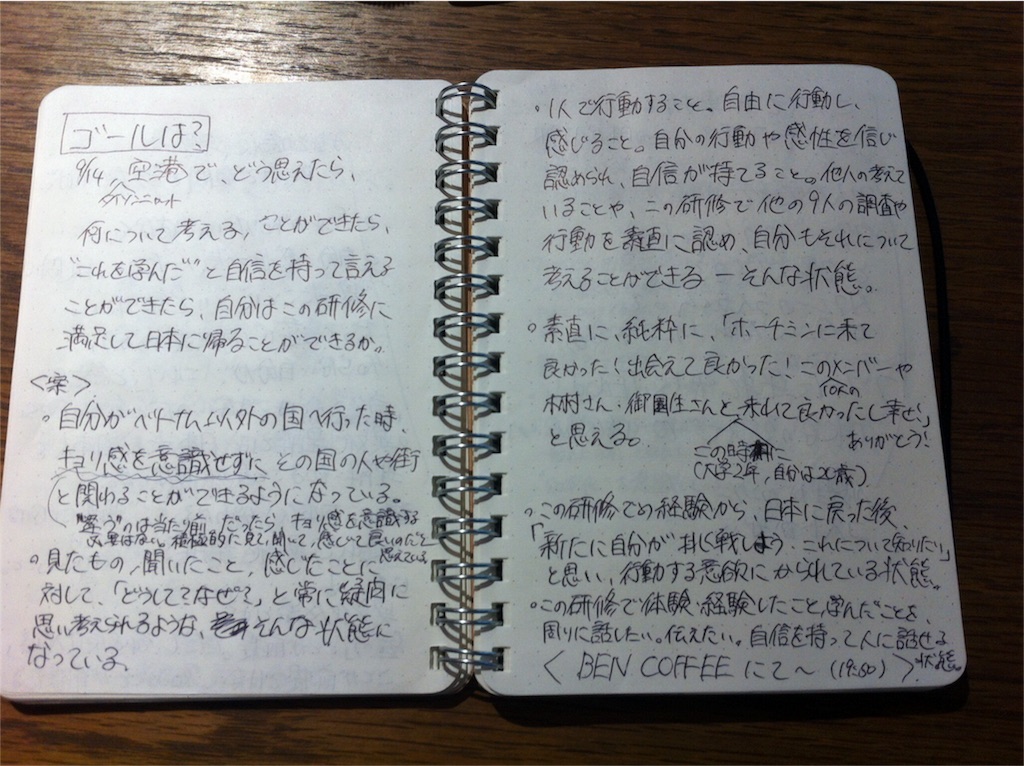 ゴールは?
9/14 空港で、どう思えたら、
何について考える、ことができたら、
"これを学んだ"と自信を持って言える
ことができたら、自分はこの研修に
満足して日本に帰ることができるか。
<案>
・自分がベトナム以外の国へ行った時、
キョリ感を意識せずにその国の人や街
と関わることができるようになっている。
"違う"のは当たり前。だったら、キョリ感を意識する
必要はない。積極的に見て、聞いて、感じて良いのだと
思えている
・見たもの、聞いたこと、感じたことに
対して、「どうして?なぜ?」と常に
思い考えられるような、そんな状態に
なっている。
・1人で行動すること。自由に行動し、
感じること。自分の行動や感性を信じ
認められ、自信が持てること。他人の考えて
いることや、この研修で他の9人の調査や
行動を素直に認め、自分もそれについて
考えることができる ー そんな状態。
・素直に、純粋に、「ホーチミンに来て
良かった!出会えて良かった!このメンバーや
10人の
木村さん・御園生さんと来れて良かったし幸せ!」
ありがとう!
と思える。
この時に
(大学2年、自分は20歳)
・この研修での経験から、日本に戻った後、
「新たに自分が挑戦しよう・これについて知りたい」
と思い、行動する意欲にかられている状態。
・この研修で体験・経験したこと、学んだことを、
周りに話したい。伝えたい。自信を持って人に話せる
状態。
< BEN COFFEE にて〜 (19:50) >